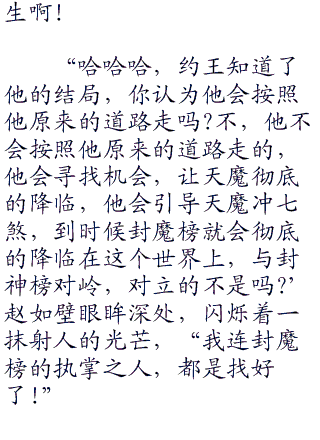 生啊！
“哈哈哈，约王知道了
他的结局，你认为他会按照
他原来的道路走吗？不，他不
会按照他原来的道路走的，
他会寻找机会，让天魔彻底
的降临，他会引导天魔冲七
煞，到时候封魔榜就会彻底
的降临在这个世界上，与封
神榜对岭，对立的不是吗？’
赵如壁眼眸深处，闪烁着一
抹射人的光芒，“我连封魔
榜的执掌之人，都是找好
了！”